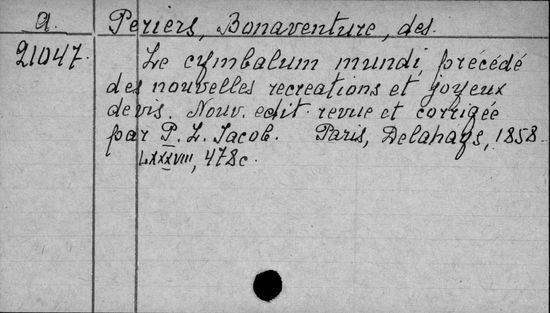 a. Periers, Bonaventure, des.
21047. Le cymbalum mundi, précédé
des nouvelles recreations et joyeux
devis. Nouv. edit. revue et corrigée
par P. L. Jacob. Paris, Delahays, 1858.
LXXXVIII, 478c.